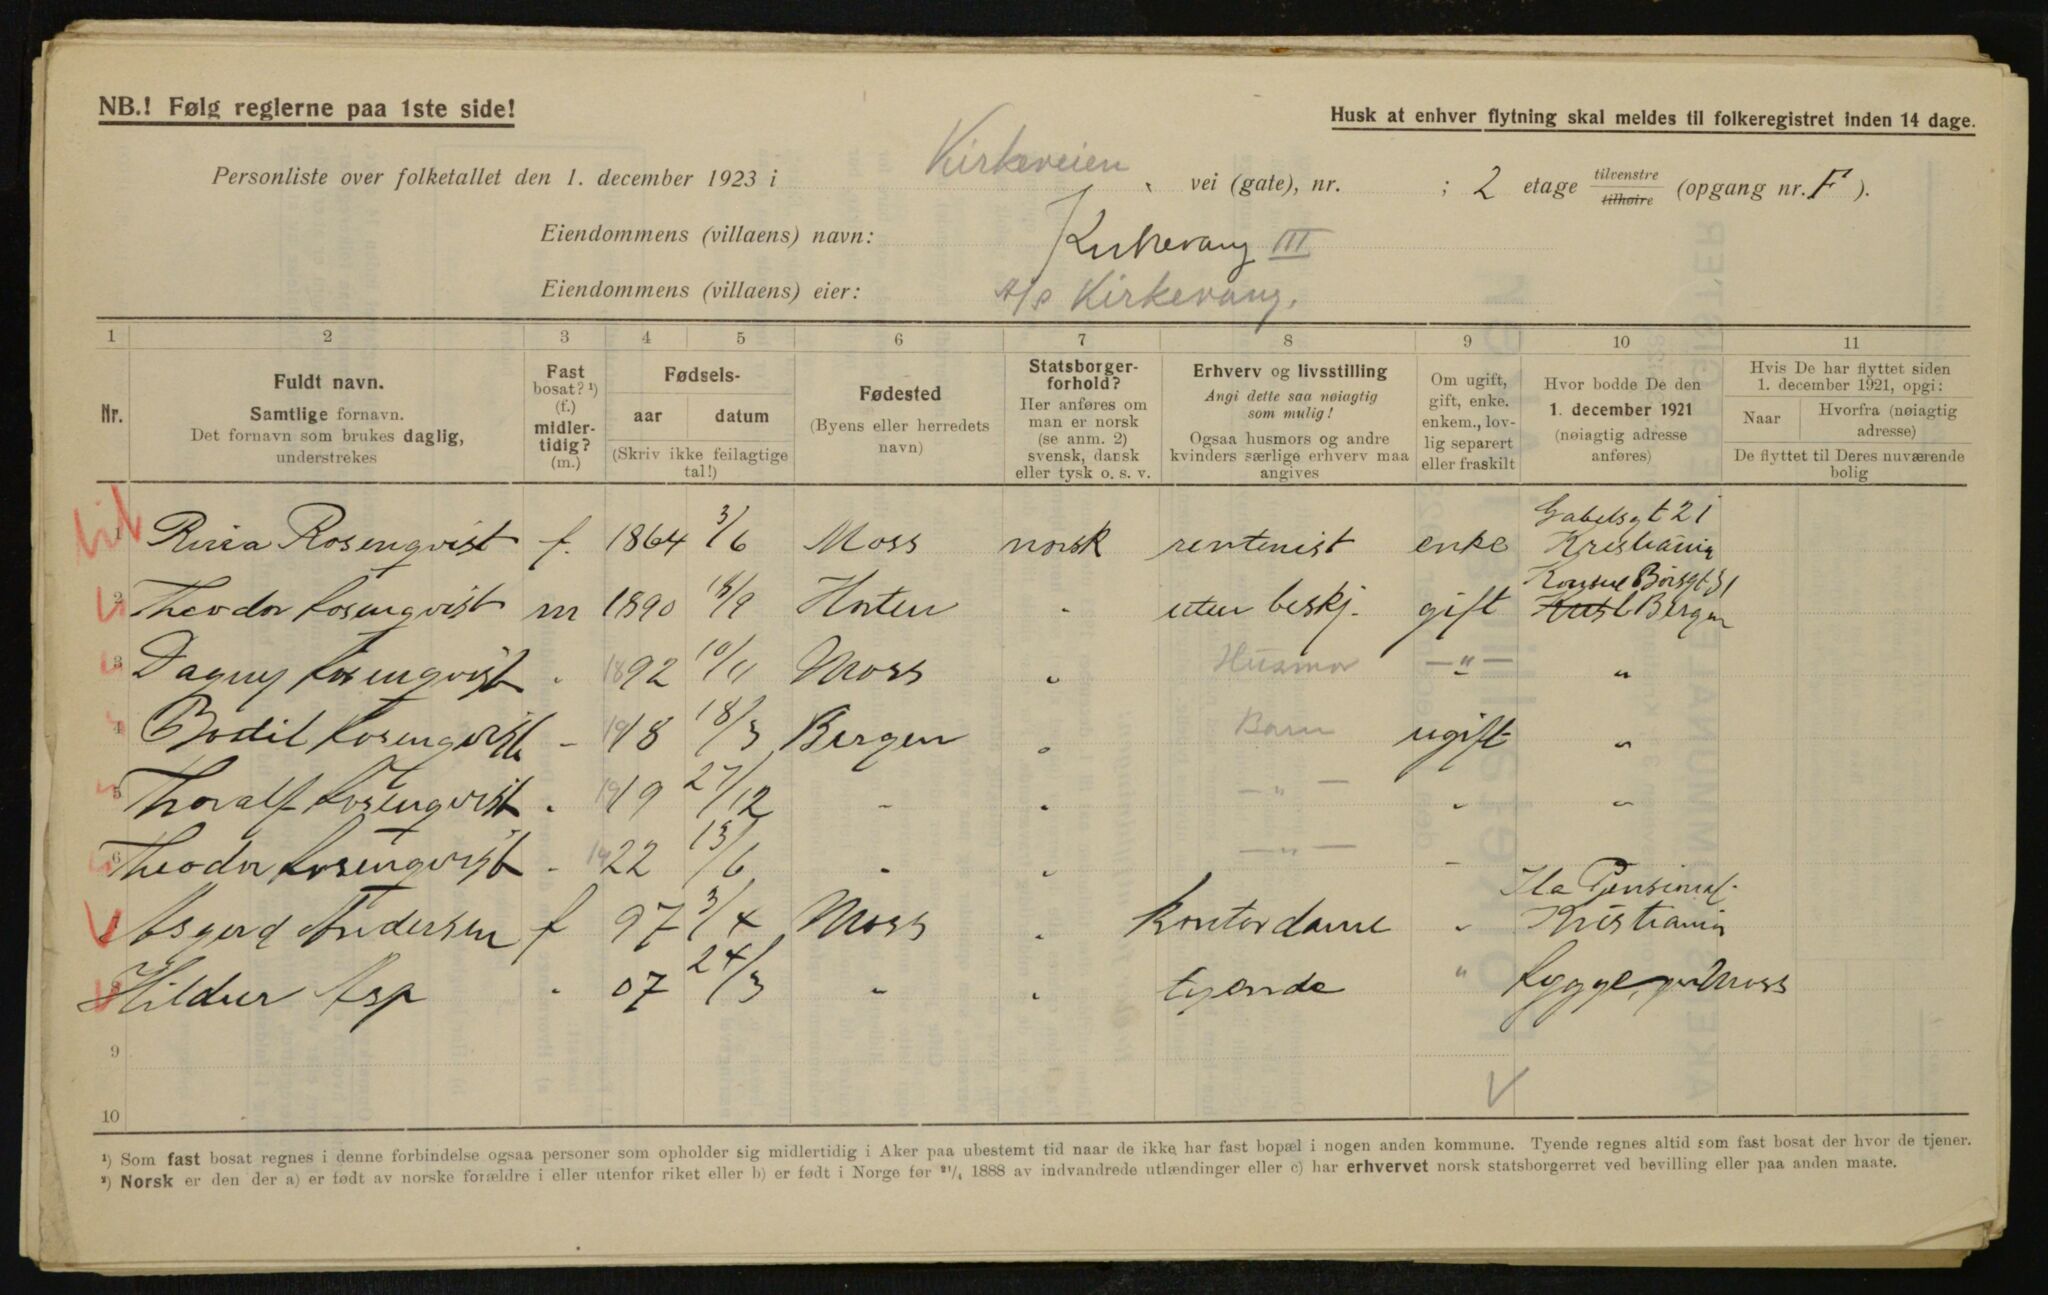 NB.! Følg reglerne paa 1ste side!
Husk at enhver flytning skal meldes til folkeregistret inden 14 dage.
Personliste over folketallet den 1. december 1923 i Kirkeveien vei (gate), nr. ; 2 etage tilvenstre tilhøire (opgang nr. F).
Eiendommens (villaens) navn: Kirkevang III
Eiendommens (villaens) eier: A/S Kirkevang.
1 2 3 4 5 6 7 8 9 10 11
Nr.
Fuldt navn.
Samtlige fornavn.
Det fornavn som brukes daglig,
understrekes
Fast
bosat? ¹)
(f.)
midler-
tidig?
(m.)
Fødsels-
aar datum
(Skriv ikke feilagtige
tal!)
Fødested
(Byens eller herredets
navn)
Statsborger-
forhold?
Her anføres om
man er norsk
(se anm. 2)
svensk, dansk
eller tysk o. s. v.
Erhverv og livsstilling
Angi dette saa nøiagtig
som mulig!
Ogsaa husmors og andre
kvinders særlige erhverv maa
angives
Om ugift,
gift, enke.
enkem., lov-
lig separert
eller fraskilt
Hvor bodde De den
1. december 1921
(nøiagtig adresse
anføres)
Hvis De har flyttet siden
1. december 1921, opgi:
Naar Hvorfra (nøiagtig
adresse)
De flyttet til Deres nuværende
bolig
Gabelsgt 21
1 Rosenqvist f. 1864 3/6 Moss norsk rentenist enke Kristiania
2 Theodor Rosenqvist m 1890 18/9 Horten " uten beskj. gift Konsul Børsgt 31
Bergen
3 Dagny Rosenqvist " 1892 10/11 Moss " Husmor —"— "
4 Bodil Rosenqvist " 1918 18/3 Bergen " Barn ugift "
5 Thoralf Rosenqvist " 1919 27/12 " " —"— " "
6 Theodor Rosenqvist " 1922 13/6 " " —"— "
Ila Pensionat
Asgerd Andersen f 97 3/4 Moss " Kontordame " Kristiania
Hildur Asp " 07 24/3 " " tyende " Rygge, Moss
9
10
¹) Som fast bosat regnes i denne forbindelse ogsaa personer som opholder sig midlertidig i Aker paa ubestemt tid naar de ikke har fast bopæl i nogen anden kommune. Tyende regnes altid som fast bosat der hvor de tjener.
²) Norsk er den der a) er født av norske forældre i eller utenfor riket eller b) er født i Norge før ²¹/₄ 1888 av indvandrede utlændinger eller c) har erhvervet norsk statsborgerret ved bevilling eller paa anden maate.